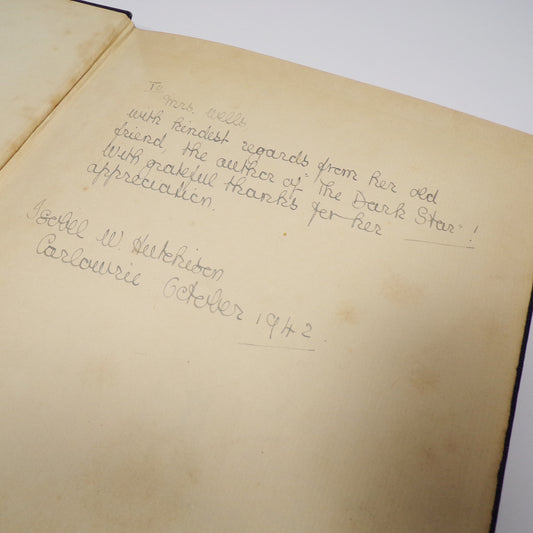 To
Mrs. Wells
with kindest regards from her old
friend, the author of "The Dark Star"!
With grateful thanks for her
appreciation.
Isobel W. Hutchison
Carlowrie October 1942.